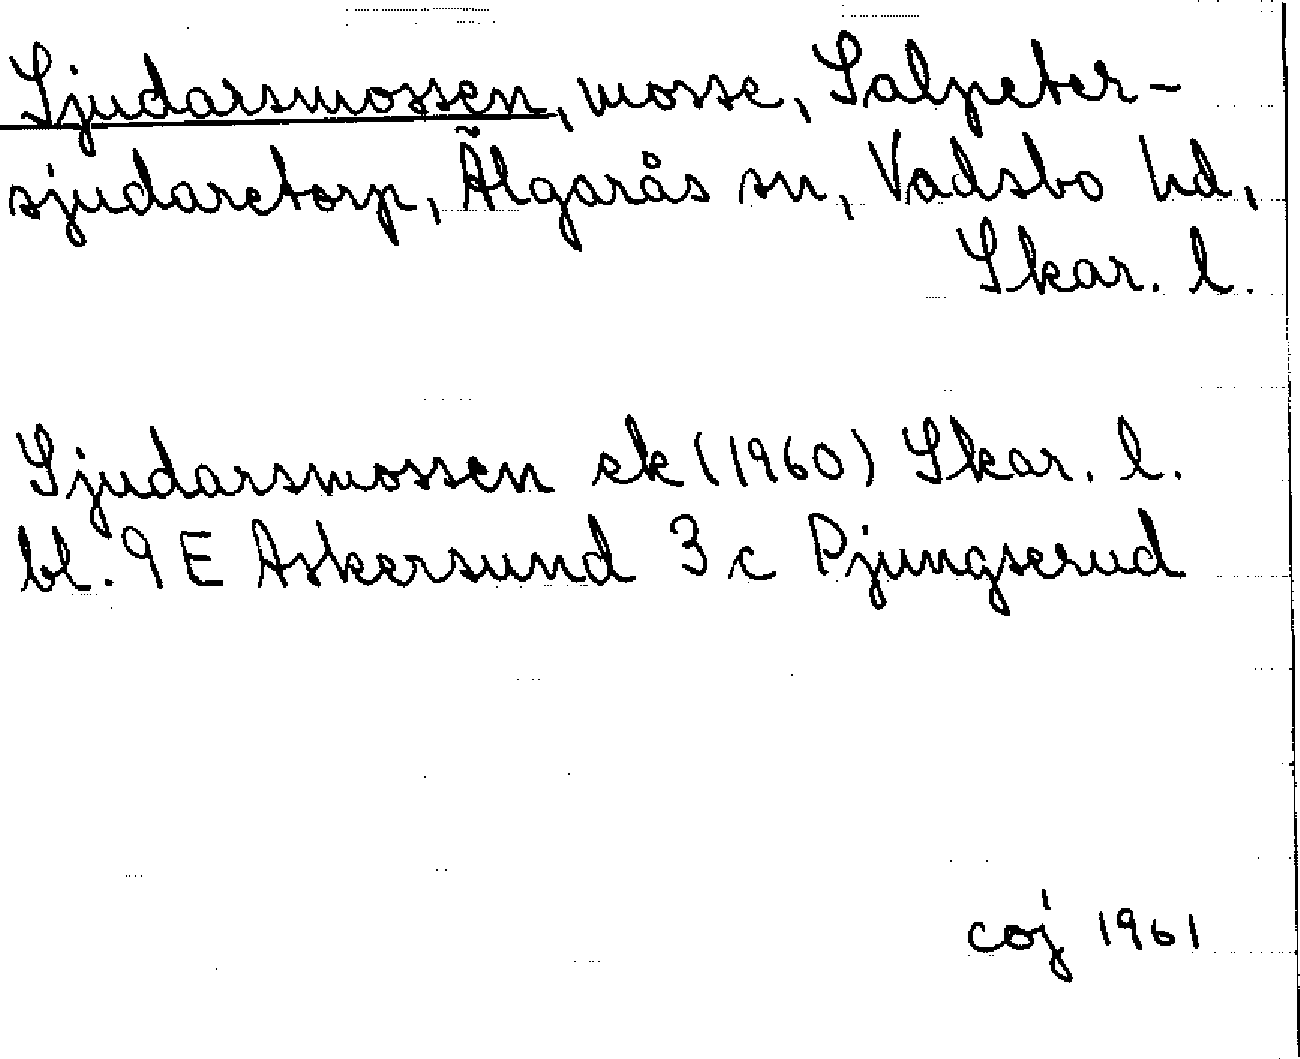 Sjudarsmossen, mosse, Salpeter-
sjudaretorp, Älgarås sn, Vadsbo hd,
Skar. l.
Sjudarsmossen ek (1960) Skar. l.
bl. 9 E Askersund 3 c Djungserud
coj 1961